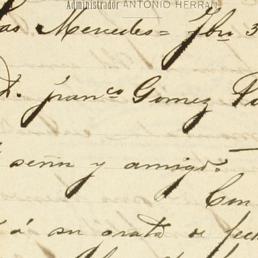 Administrador ANTONIO HERRAN
Las Mercedes = Fbro 3
D. Franco Gomez
señor y amigo.
Con
á su grata de fec